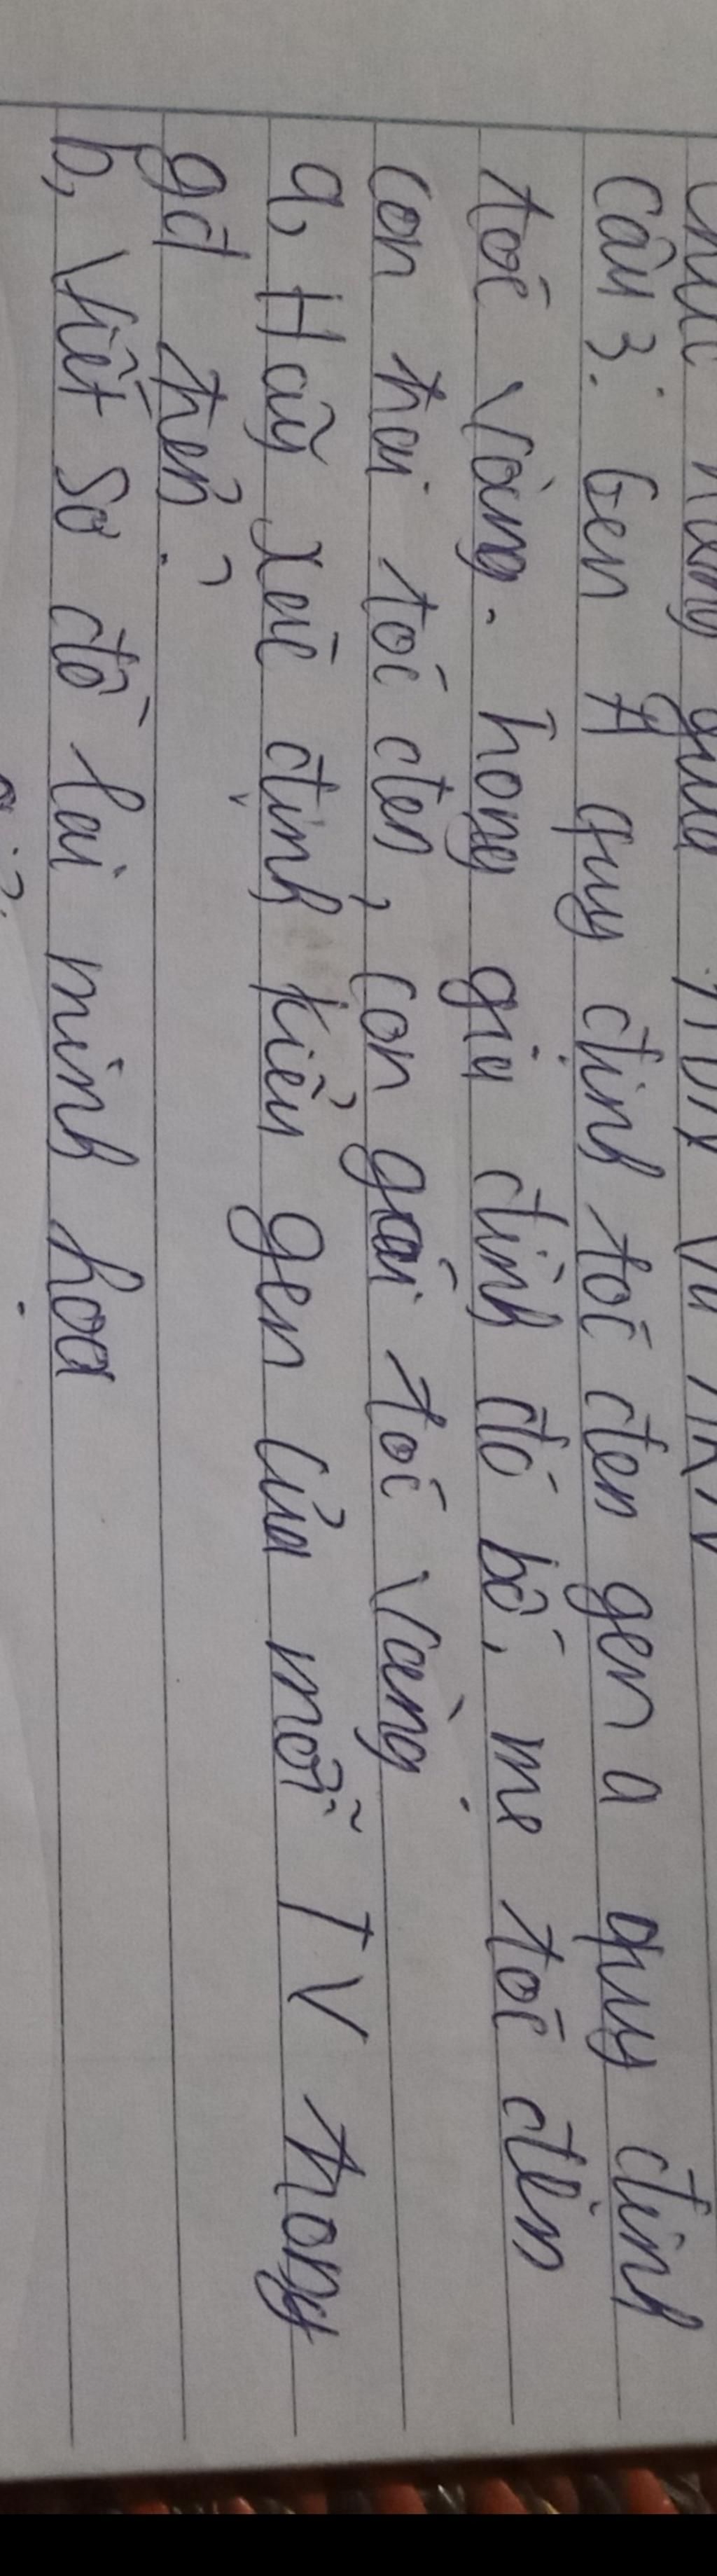 câu 3: Gen A quy định tóc đen gen a quy định
tóc vàng. trong gia đình đó bố, mẹ tóc đen
con trai tóc đen, con gái tóc vàng.
a, Hãy xác định kiểu gen của mỗi TV trong
gđ trên?
b, Viết sơ đồ lai minh hoạ